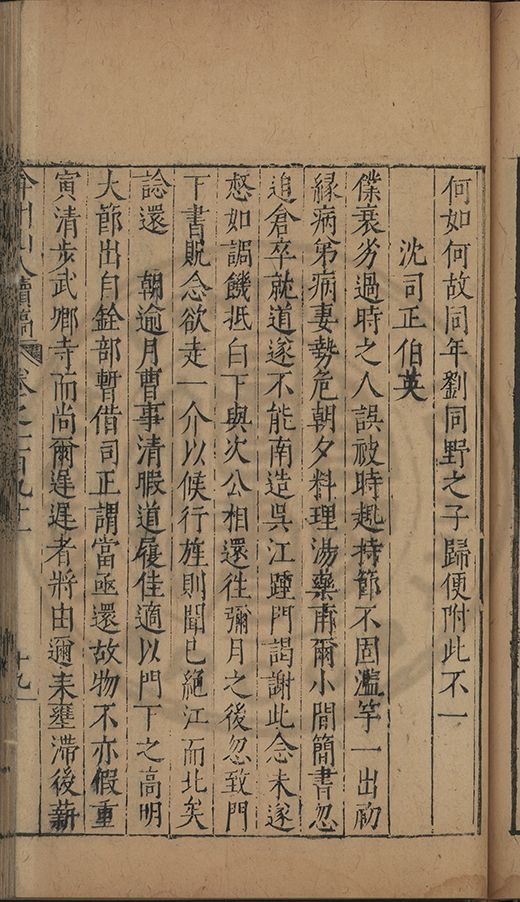 何如何故同年劉同野之子歸便附此不一
沈司正伯英
僕衰劣過時之人誤被時趣持節不固濫竽一出初
緣病弟病妻勢危朝夕料理湯藥甫爾小間簡書忽
追倉卒就道遂不能南造吳江踵門謁謝此念未遂
惄如調饑抵白下與次公相還往彌月之後忽致門
下書貺念欲走一介以候行旌則聞已絕江而北矣
諗還 朝逾月曹事清暇道履佳適以門下之高明
大節出自銓部暫借司正謂當亟還故物不亦假重
寅清步武卿寺而尚爾遲遲者將由邇来壅滯後薪
弇州山人續稿 卷之一百九十二 十九